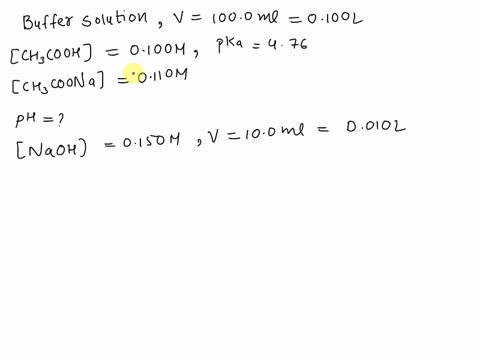 Buffer solution, V = 100.0 ml = 0.100L
[CH3COOH] = 0.100M, pKa = 4.76
[CH3COONa] = 0.110M
pH = ?
[NaOH) = 0.150M, V = 10.0 ml = 0.010L